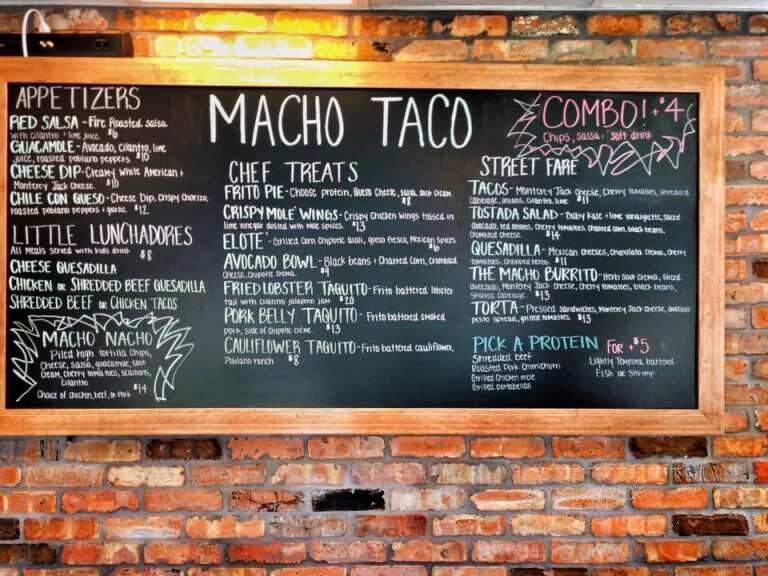 MACHO TACO
APPETIZERS
RED SALSA - Fire Roasted salsa
with cilantro + lime juice. $6
GUACAMOLE - Avocado, cilantro, lime
juice, roasted poblano peppers $10
CHEESE DIP - Creamy White American +
Monterey Jack Cheese. $10
CHILE CON QUESO - Cheese Dip, Crispy Chorizo,
roasted poblano peppers + garlic. $12
LITTLE LUNCHADORES
All Meals Served with kids drink $8
CHEESE QUESADILLA
CHICKEN or SHREDDED BEEF QUESADILLA
SHREDDED BEEF or CHICKEN TACOS
MACHO NACHO
Piled high tortilla chips,
Cheese, salsa, guacamole, sour
cream, cherry tomatoes, scallions,
Cilantro
Choice of chicken, beef, or Pork $14
CHEF TREATS
FRITO PIE - Choose protein, Queso Cheese, salsa, sour cream.
$8
CRISPY MOLE' WINGS - Crispy Chicken wings tossed in
lime vinegar dusted with mole spices. $13
ELOTE' - Grilled Corn chipotle aioli, queso fresco, Mexican spices
$6
AVOCADO BOWL - Black beans + Charred Corn, Crumbled
Cheese, Chipotle Crema. $9
FRIED LOBSTER TAQUITO - Frito battered lobster
tail with cilantro jalapeno jam $20
PORK BELLY TAQUITO - Frito battered smoked
pork, side of Chipotle crème. $13
CAULIFLOWER TAQUITO - Frito battered cauliflower,
Poblano ranch $8
COMBO! +$4
Chips, salsa + soft drink
STREET FARE
TACOS - Monterey Jack Cheese, Cherry tomatoes, shredded
cabbage, onions, Cilantro, lime $11
TOSTADA SALAD - Baby Kale + lime vinaigrette, sliced
avocado, red onions, cherry tomatoes, charred corn, black beans,
crumbled cheese. $14
QUESADILLA - Mexican cheeses, Chipolata crema, Cherry
tomatoes, chopped $11
THE MACHO BURRITO - Herb sour crema, sliced
avocado, Monterey Jack Cheese, cherry tomatoes, black beans,
shaved cabbage. $13
TORTA - Pressed sandwiches, Monterey Jack Cheese, avocado
pesto spread, grilled tomatoes. $13
PICK A PROTEIN FOR +$5
Shredded beef
Roasted Pork Chimichurri
Grilled Chicken mole
Grilled portabellas
Lightly Tempura battered
Fish or Shrimp